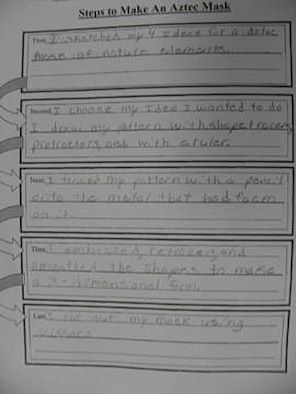 Steps to Make An Aztec Mask
First, I sketched my 4 Ideas for a Aztec
Mask of nature elements.
Second, I choose my Idea I wanted to do
I drew my pattern with shape tracers,
protractors, and with a ruler.
Next, I traced my pattern with a pencil
onto the metal that had foam
on it.
Then, I embossed, retraced, and
smoothed the shapes to make
a 3-dimensional form.
Last, I cut out my mask using
scissors